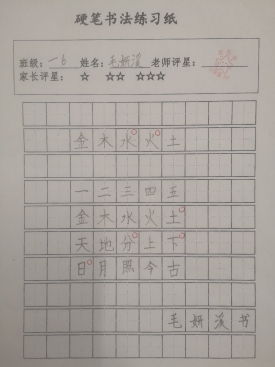 硬笔书法练习纸
班级：一6 姓名：毛妍溪 老师评星：
家长评星： ☆ ☆☆ ☆☆☆
金木水火土
一二三四五
金木水火土
天地分上下
日月照今古
毛妍溪书